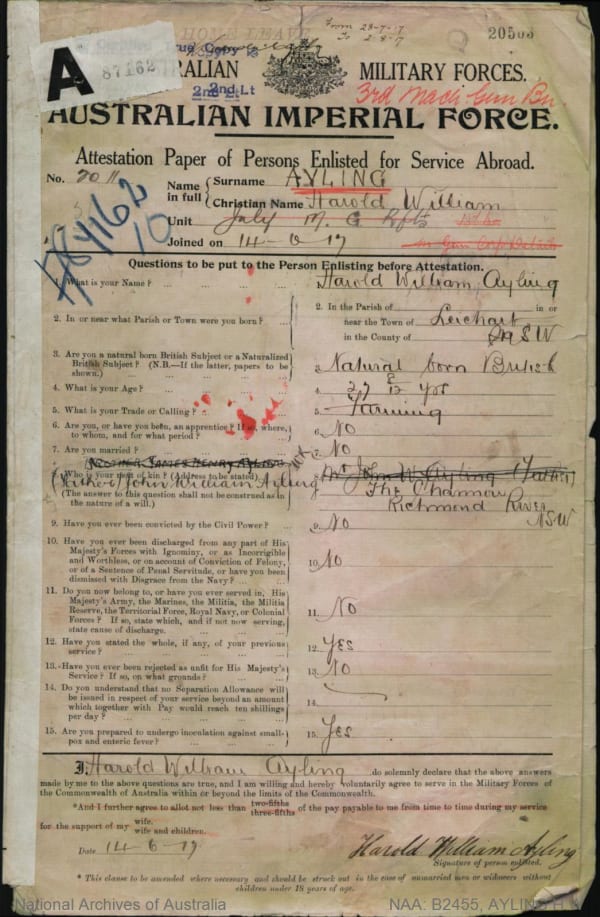 HOME LEAVE
From 23-7-17
To 2-8-17
20503
True Copy
A
87162
AUSTRALIAN MILITARY FORCES.
2nd Lt 2nd Lt
3rd Mach Gun Bn
AUSTRALIAN IMPERIAL FORCE.
Attestation Paper of Persons Enlisted for Service Abroad.
No. 7011
Name in full { Surname AYLING
Christian Name Harold William
Unit July M. G. Rfts
Joined on 14-6-17
Questions to be put to the Person Enlisting before Attestation.
1. What is your Name? Harold William Ayling
2. In or near what Parish or Town were you born? 2. In the Parish of in or
near the Town of Leichart
in the County of NSW
3. Are you a natural born British Subject or a Naturalized
British Subject? (N.B.—If the latter, papers to be
shown.) 3. Natural born British
4. What is your Age? 4. 27 yrs
5. What is your Trade or Calling? 5. Farming
6. Are you, or have you been, an apprentice? If so, where,
to whom, and for what period? 6. No
7. Are you married? 7. No
BROTHER JAMES HENRY AYLING
8. Who is your next of kin? (Address to be stated) Mr John W. Ayling (Father)
(Father) John William Ayling
(The answer to this question shall not be construed as in
the nature of a will.) The Channon
Richmond River
NSW
9. Have you ever been convicted by the Civil Power? 9. No
10. Have you ever been discharged from any part of His
Majesty's Forces with Ignominy, or as Incorrigible
and Worthless, or on account of Conviction of Felony,
or of a Sentence of Penal Servitude, or have you been
dismissed with Disgrace from the Navy? 10. No
11. Do you now belong to, or have you ever served in, His
Majesty's Army, the Marines, the Militia, the Militia
Reserve, the Territorial Force, Royal Navy, or Colonial
Forces? If so, state which, and if not now serving,
state cause of discharge. 11. No
12. Have you stated the whole, if any, of your previous
service? 12. Yes
13. Have you ever been rejected as unfit for His Majesty's
Service? If so, on what grounds? 13. No
14. Do you understand that no Separation Allowance will
be issued in respect of your service beyond an amount
which together with Pay would reach ten shillings
per day? 14.
15. Are you prepared to undergo inoculation against small-
pox and enteric fever? 15. Yes
I, Harold William Ayling do solemnly declare that the above answers
made by me to the above questions are true, and I am willing and hereby voluntarily agree to serve in the Military Forces of
the Commonwealth of Australia within or beyond the limits of the Commonwealth.
*And I further agree to allot not less than two-fifths three-fifths of the pay payable to me from time to time during my service
for the support of my wife. wife and children.
Date 14-6-17
Harold William Ayling
Signature of person enlisted.
* This clause to be amended where necessary and should be struck out in the case of unmarried men or widowers without
children under 18 years of age.
National Archives of Australia
NAA: B2455, AYLING H W